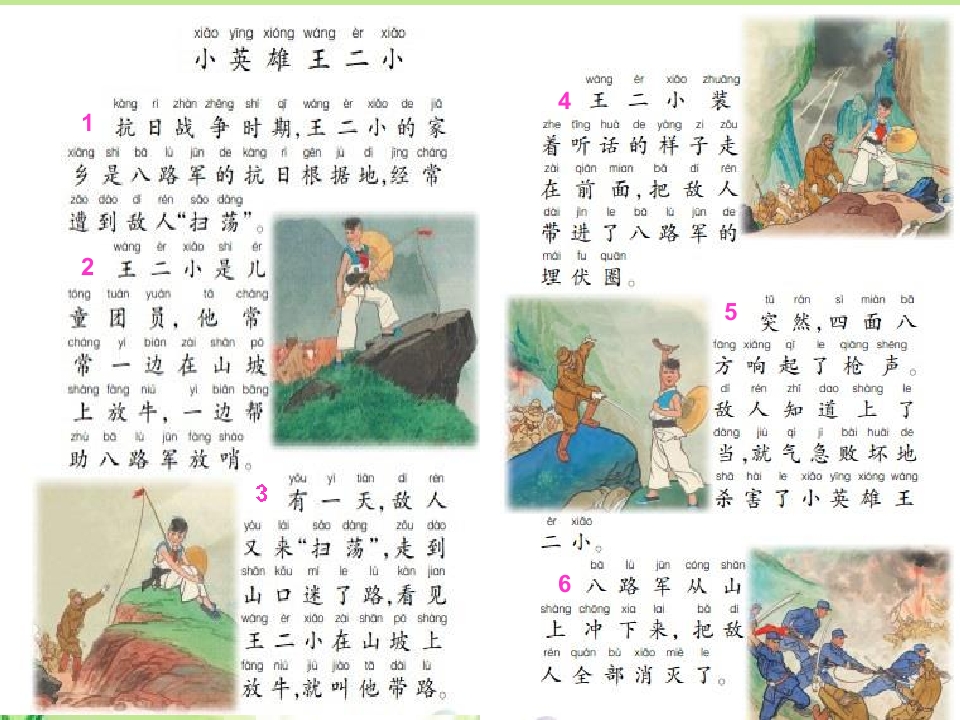 xiǎo yīng xióng wáng èr xiǎo
小英雄王二小
kàng rì zhàn zhēng shí qī wáng èr xiǎo de jiā
1 抗日战争时期,王二小的家
xiāng shì bā lù jūn de kàng rì gēn jù dì jīng cháng
乡是八路军的抗日根据地,经常
zāo dào dí rén sǎo dàng
遭到敌人“扫荡”。
wáng èr xiǎo shì ér
2 王二小是儿
tóng tuán yuán tā cháng
童团员,他常
cháng yì biān zài shān pō
常一边在山坡
shàng fàng niú yì biān bāng
上放牛,一边帮
zhù bā lù jūn fàng shào
助八路军放哨。
yǒu yì tiān dí rén
3 有一天,敌人
yòu lái sǎo dàng zǒu dào
又来“扫荡”,走到
shān kǒu mí le lù kàn jian
山口迷了路,看见
wáng èr xiǎo zài shān pō shàng
王二小在山坡上
fàng niú jiù jiào tā dài lù
放牛,就叫他带路。
wáng èr xiǎo zhuāng
4 王二小装
zhe tīng huà de yàng zi zǒu
着听话的样子走
zài qián mian bǎ dí rén
在前面,把敌人
dài jìn le bā lù jūn de
带进了八路军的
mái fu quān
埋伏圈。
tū rán sì miàn bā
5 突然,四面八
fāng xiǎng qǐ le qiāng shēng
方响起了枪声。
dí rén zhī dao shàng le
敌人知道上了
dàng jiù qì jí bài huài de
当,就气急败坏地
shā hài le xiǎo yīng xióng wáng
杀害了小英雄王
èr xiǎo
二小。
bā lù jūn cóng shān
6 八路军从山
shàng chōng xia lai bǎ dí
上冲下来,把敌
rén quán bù xiāo miè le
人全部消灭了。